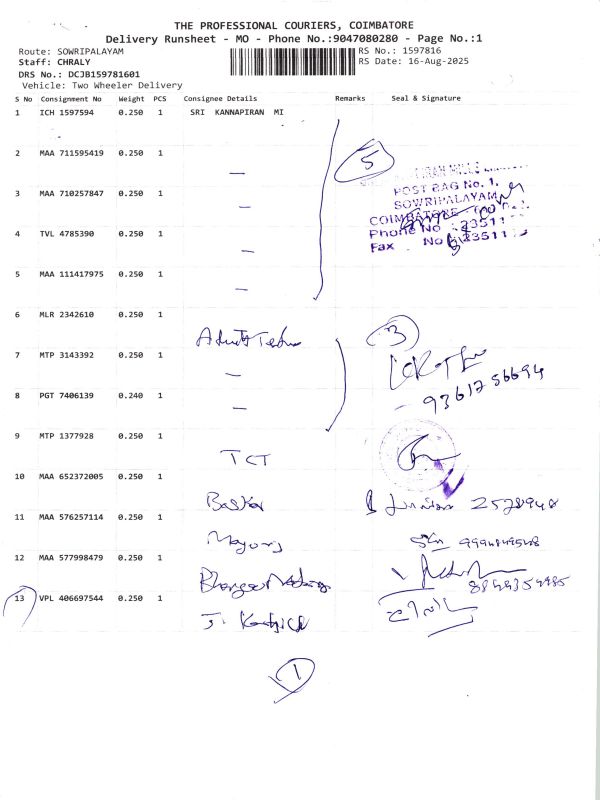 THE PROFESSIONAL COURIERS, COIMBATORE
Delivery Runsheet - MO - Phone No.:9047080280 - Page No.:1
Route: SOWRIPALAYAM
RS No.: 1597816
Staff: CHRALY
RS Date: 16-Aug-2025
DRS No.: DCJB159781601
Vehicle: Two Wheeler Delivery
S No Consignment No Weight PCS Consignee Details Remarks Seal & Signature
1 ICH 1597594 0.250 1 SRI KANNAPIRAN MI
5
2 MAA 711595419 0.250 1 —
POST BAG No. 1,
SOWRIPALAYAM
3 MAA 710257847 0.250 1 —
COIMBATORE
Phone No
4 TVL 4785390 0.250 1 —
Fax No
5 MAA 111417975 0.250 1 —
6 MLR 2342610 0.250 1
3
7 MTP 3143392 0.250 1 —
8 PGT 7406139 0.240 1 —
9361256694
9 MTP 1377928 0.250 1 TCT
10 MAA 652372005 0.250 1 Baskar
11 MAA 576257114 0.250 1
12 MAA 577998479 0.250 1
13 VPL 406697544 0.250 1
1